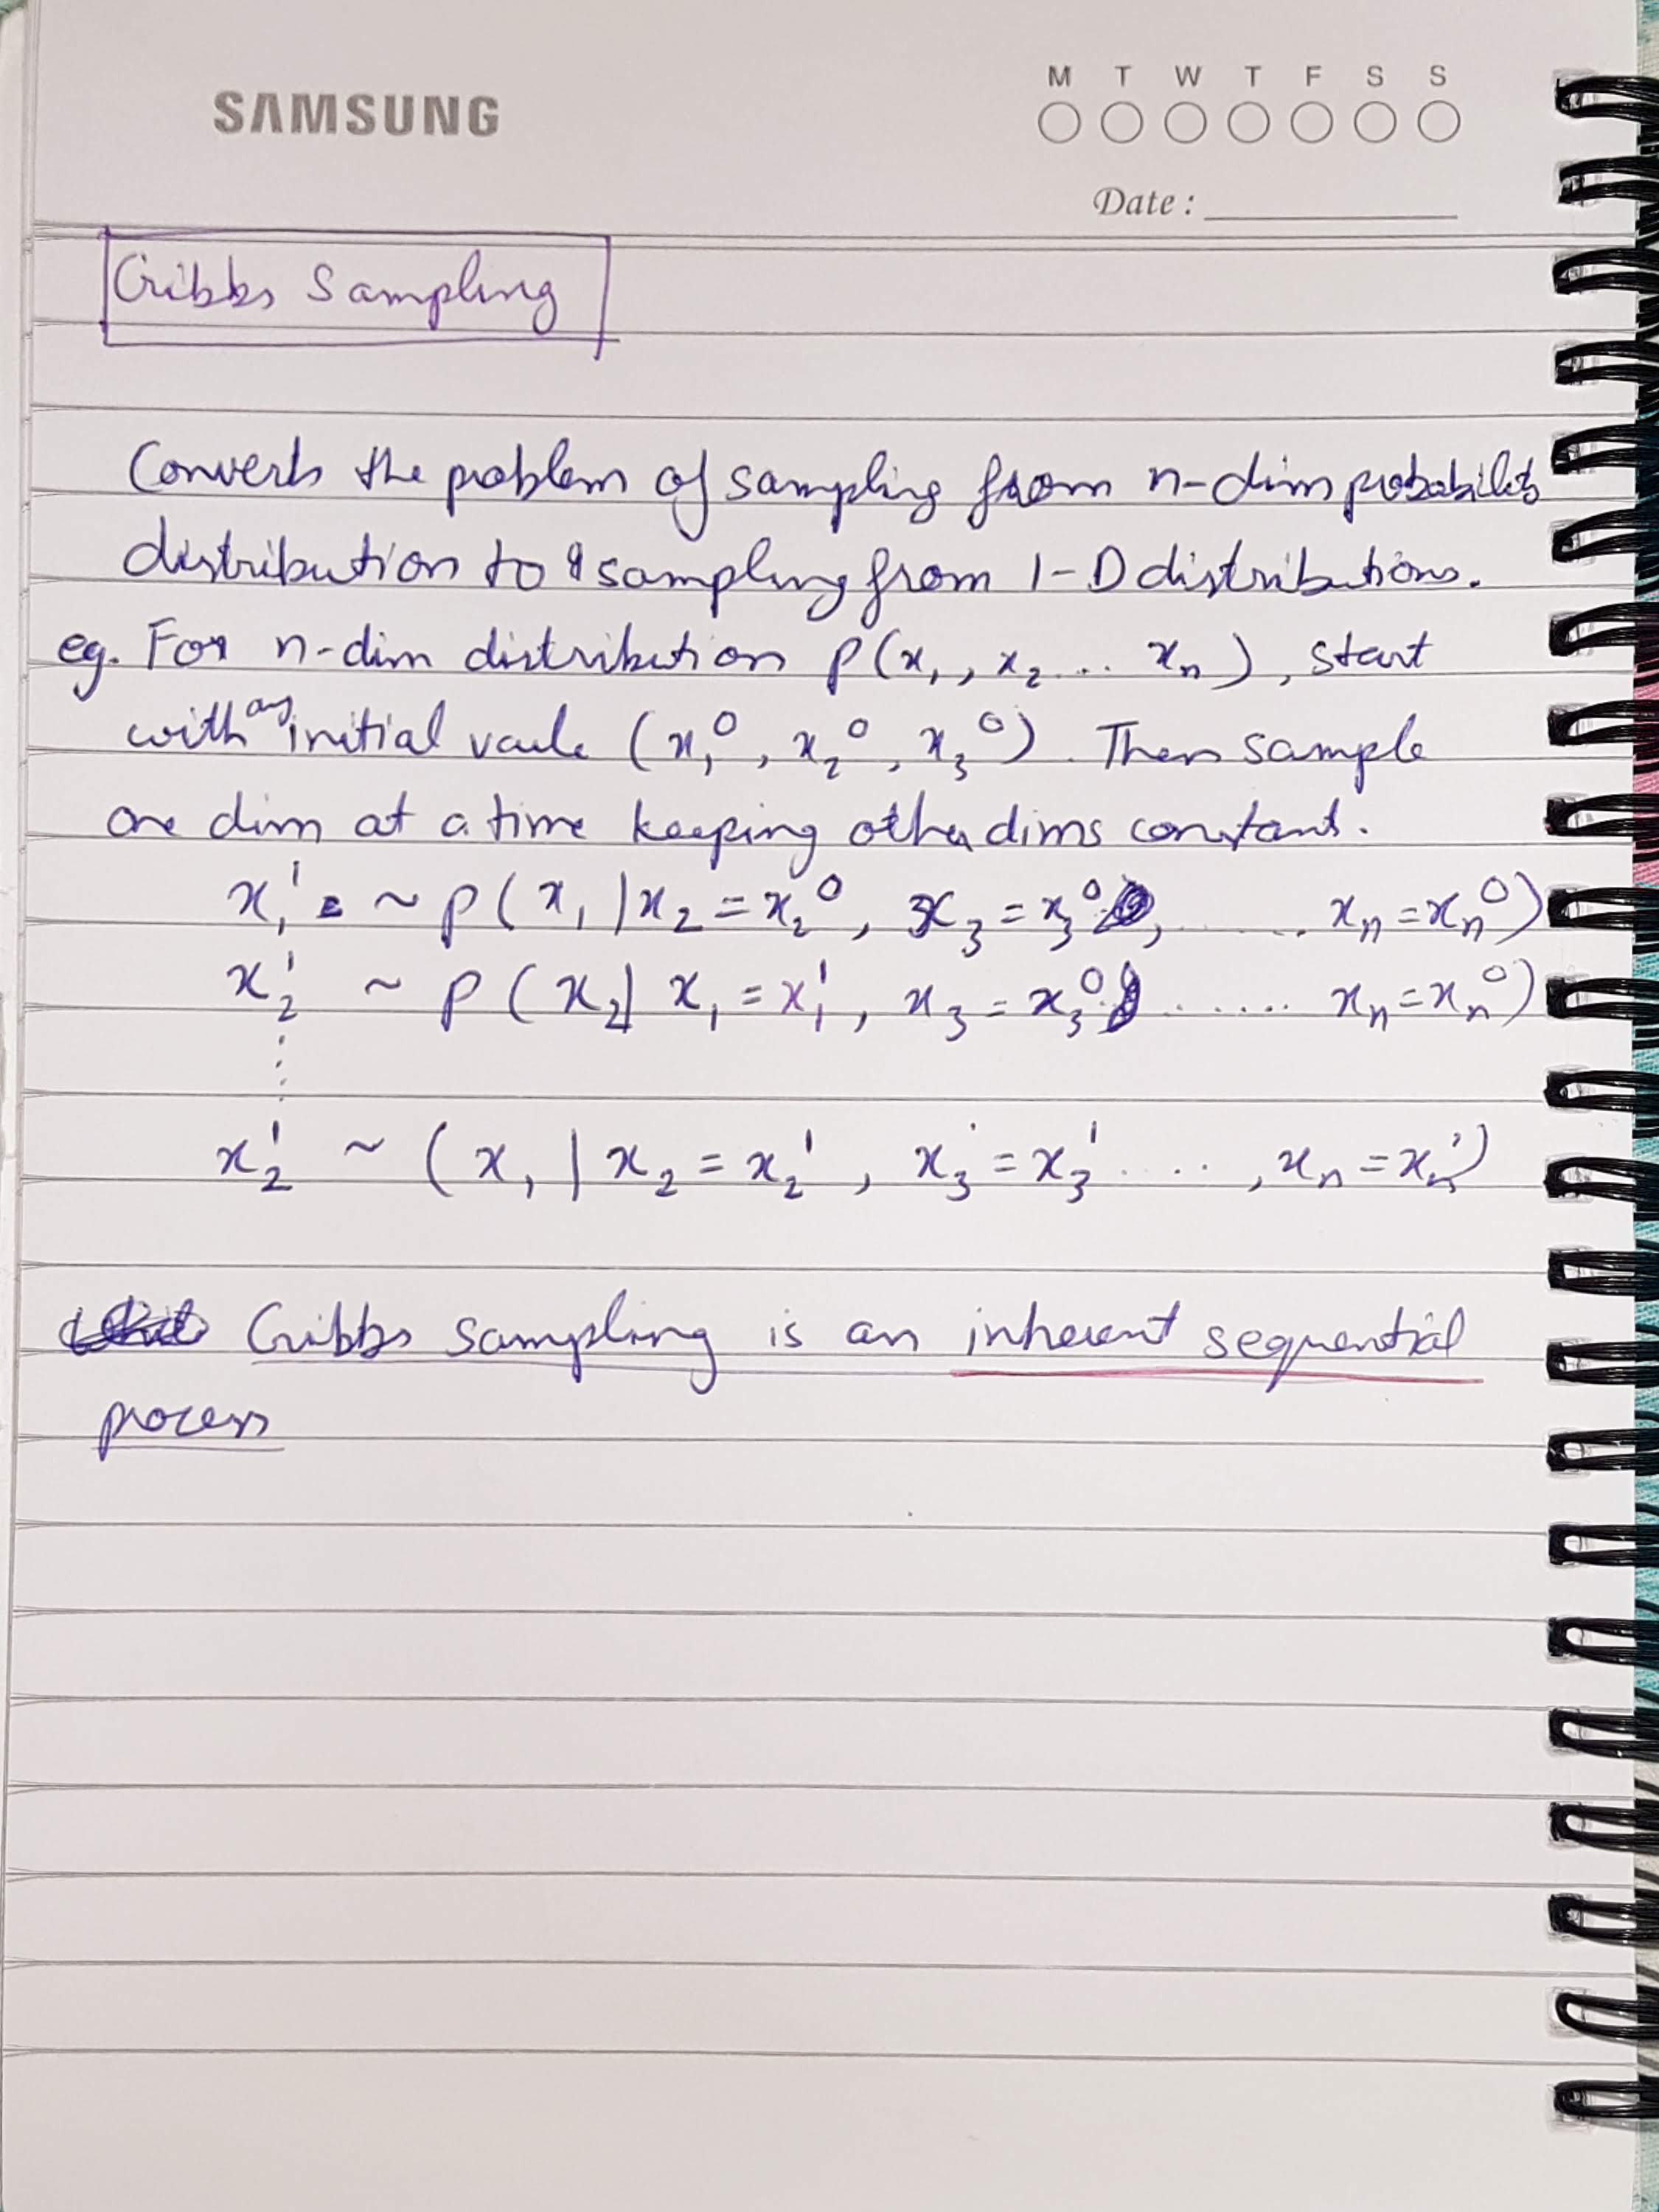 SAMSUNG
M T W T F S S
Date :
Gibbs Sampling
Converts the problem of sampling from n-dim probability
distribution to sampling from 1-D distributions.
eg. For n-dim distribution p(x₁, x₂ ... xₙ), start
with any initial vaule (x₁⁰, x₂⁰, x₃⁰). Then sample
one dim at a time keeping other dims constant.
x₁¹ ~ p(x₁ | x₂ = x₂⁰, x₃ = x₃⁰, ...... xₙ = xₙ⁰)
x₂¹ ~ p(x₂ | x₁ = x₁¹, x₃ = x₃⁰ ...... xₙ = xₙ⁰)
⋮
x₂¹ ~ (x₁ | x₂ = x₂¹, x₃ = x₃¹ ...., xₙ = xₙ¹)
Gibbs sampling is an inherent sequential
process